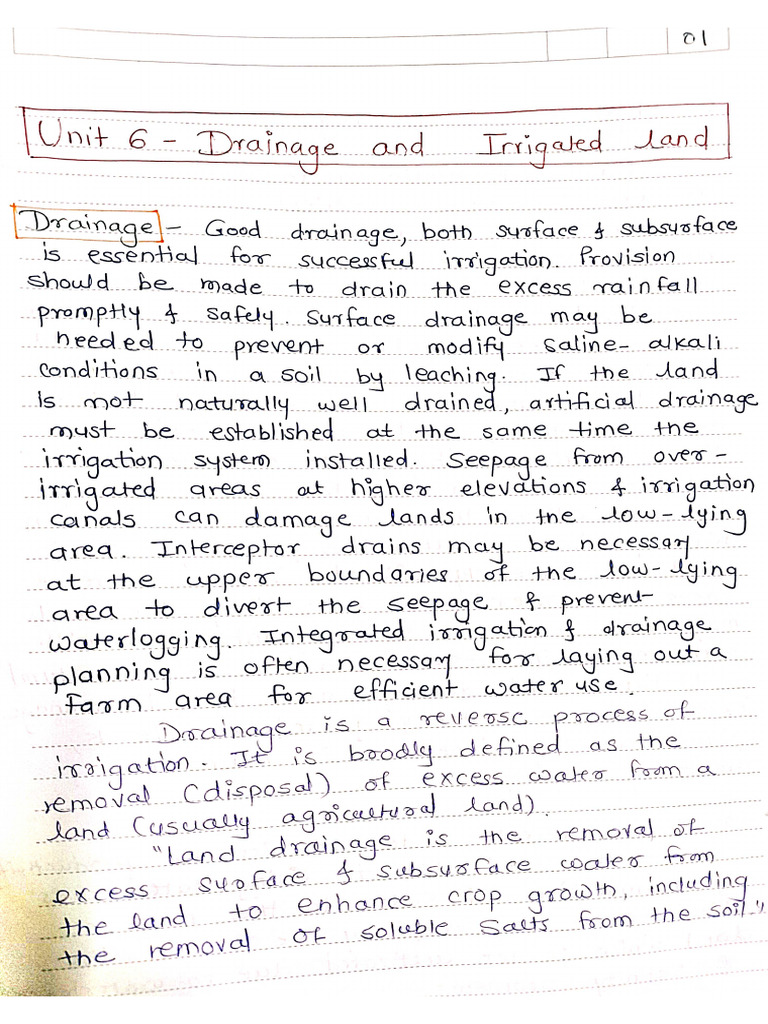 01
Unit 6 - Drainage and Irrigated land
Drainage - Good drainage, both surface & subsurface
is essential for successful irrigation. Provision
should be made to drain the excess rainfall
promptly & safely. Surface drainage may be
needed to prevent or modify saline-alkali
conditions in a soil by leaching. If the land
is not naturally well drained, artificial drainage
must be established at the same time the
irrigation system installed. Seepage from over-
irrigated areas at higher elevations & irrigation
canals can damage lands in the low-lying
area. Interceptor drains may be necessary
at the upper boundaries of the low-lying
area to divert the seepage & prevent
waterlogging. Integrated irrigation & drainage
planning is often necessary for laying out a
farm area for efficient water use.
Drainage is a reverse process of
irrigation. It is brodly defined as the
removal (disposal) of excess water from a
land (usually agricultural land).
"Land drainage is the removal of
excess surface & subsurface water from
the land to enhance crop growth, including
the removal of soluble salts from the soil."